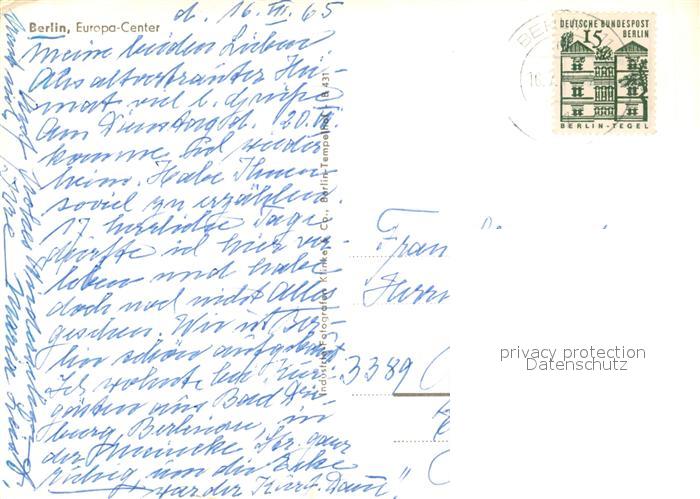 Berlin, Europa-Center
d. 16. VII. 65
Meine beiden Lieben
Aus altvertrauter Hei-
mat viel l. Grüße
Am Dienstag d. 20. VII.
komme ich wieder
heim. Habe Ihnen
soviel zu erzählen.
17 herrliche Tage
durfte ich hier ver-
leben und habe
doch noch nicht Alles
gesehen. Wie ist Ber-
lin schön aufgebaut
Ich wohnte bei Kur-
gästen aus Bad Dri-
burg, Berliner, in
der Meinecke Str. ganz
ruhig um die Ecke
war der Kurf. Damm
Auf frohes Wiedersehen
Ihre
Maria
Industrie-Fotografen Klinke & Co., Berlin-Tempelhof B 431
DEUTSCHE BUNDESPOST
BERLIN
15
BERLIN-TEGEL
BERLIN 11
16.7.
Frau
Herrn
3389
privacy protection
Datenschutz